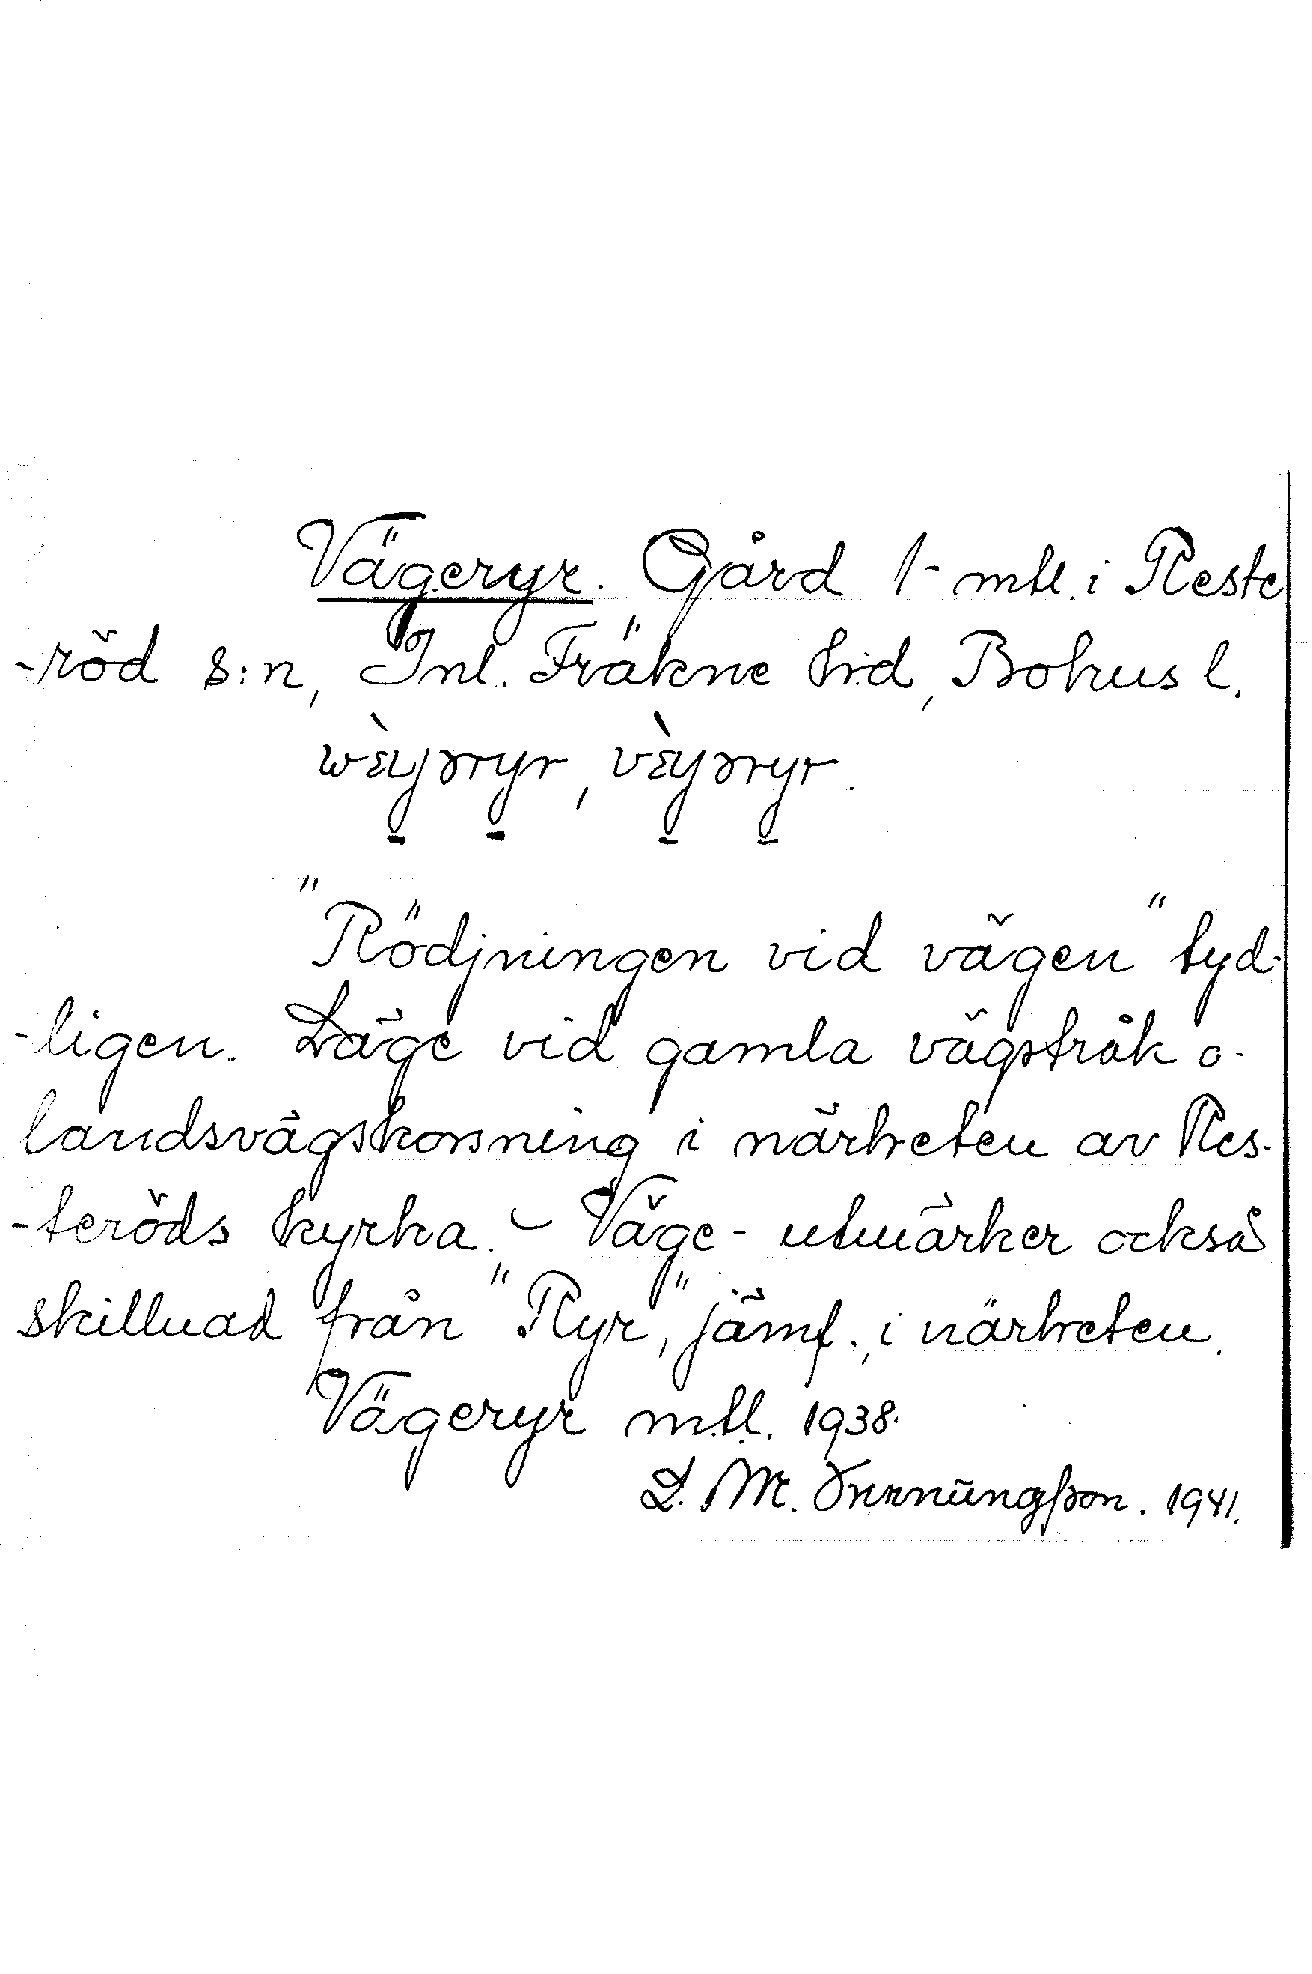 Vägeryr. Gård 1- mtl. i Reste
-röd s:n, Inl. Fräkne hrd, Bohus l.
wὲyəryr, vὲyəryr.
"Rödjningen vid vägen" tyd-
-ligen. Läge vid gamla vägstråk o-
landsvägskorsning i närheten av Res-
-teröds kyrka. - Väge- utmärker också
skillnad från "Ryr", jämf., i närheten.
Vägeryr mtl. 1938.
L. M. 1941.